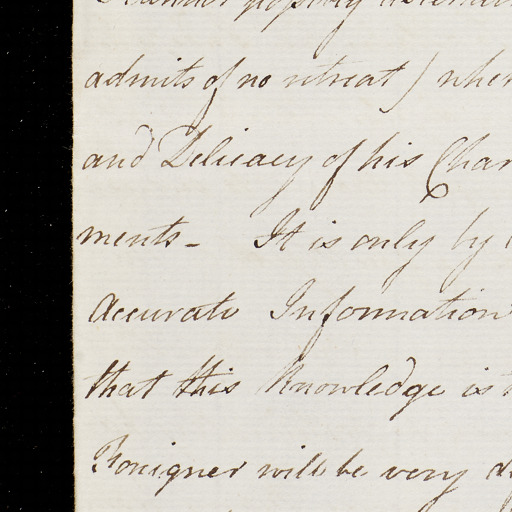 admits of no retreat) when
and Delicacy of his Char
ments - It is only by
Accurate Information
that this Knowledge is
Foreigner will be very